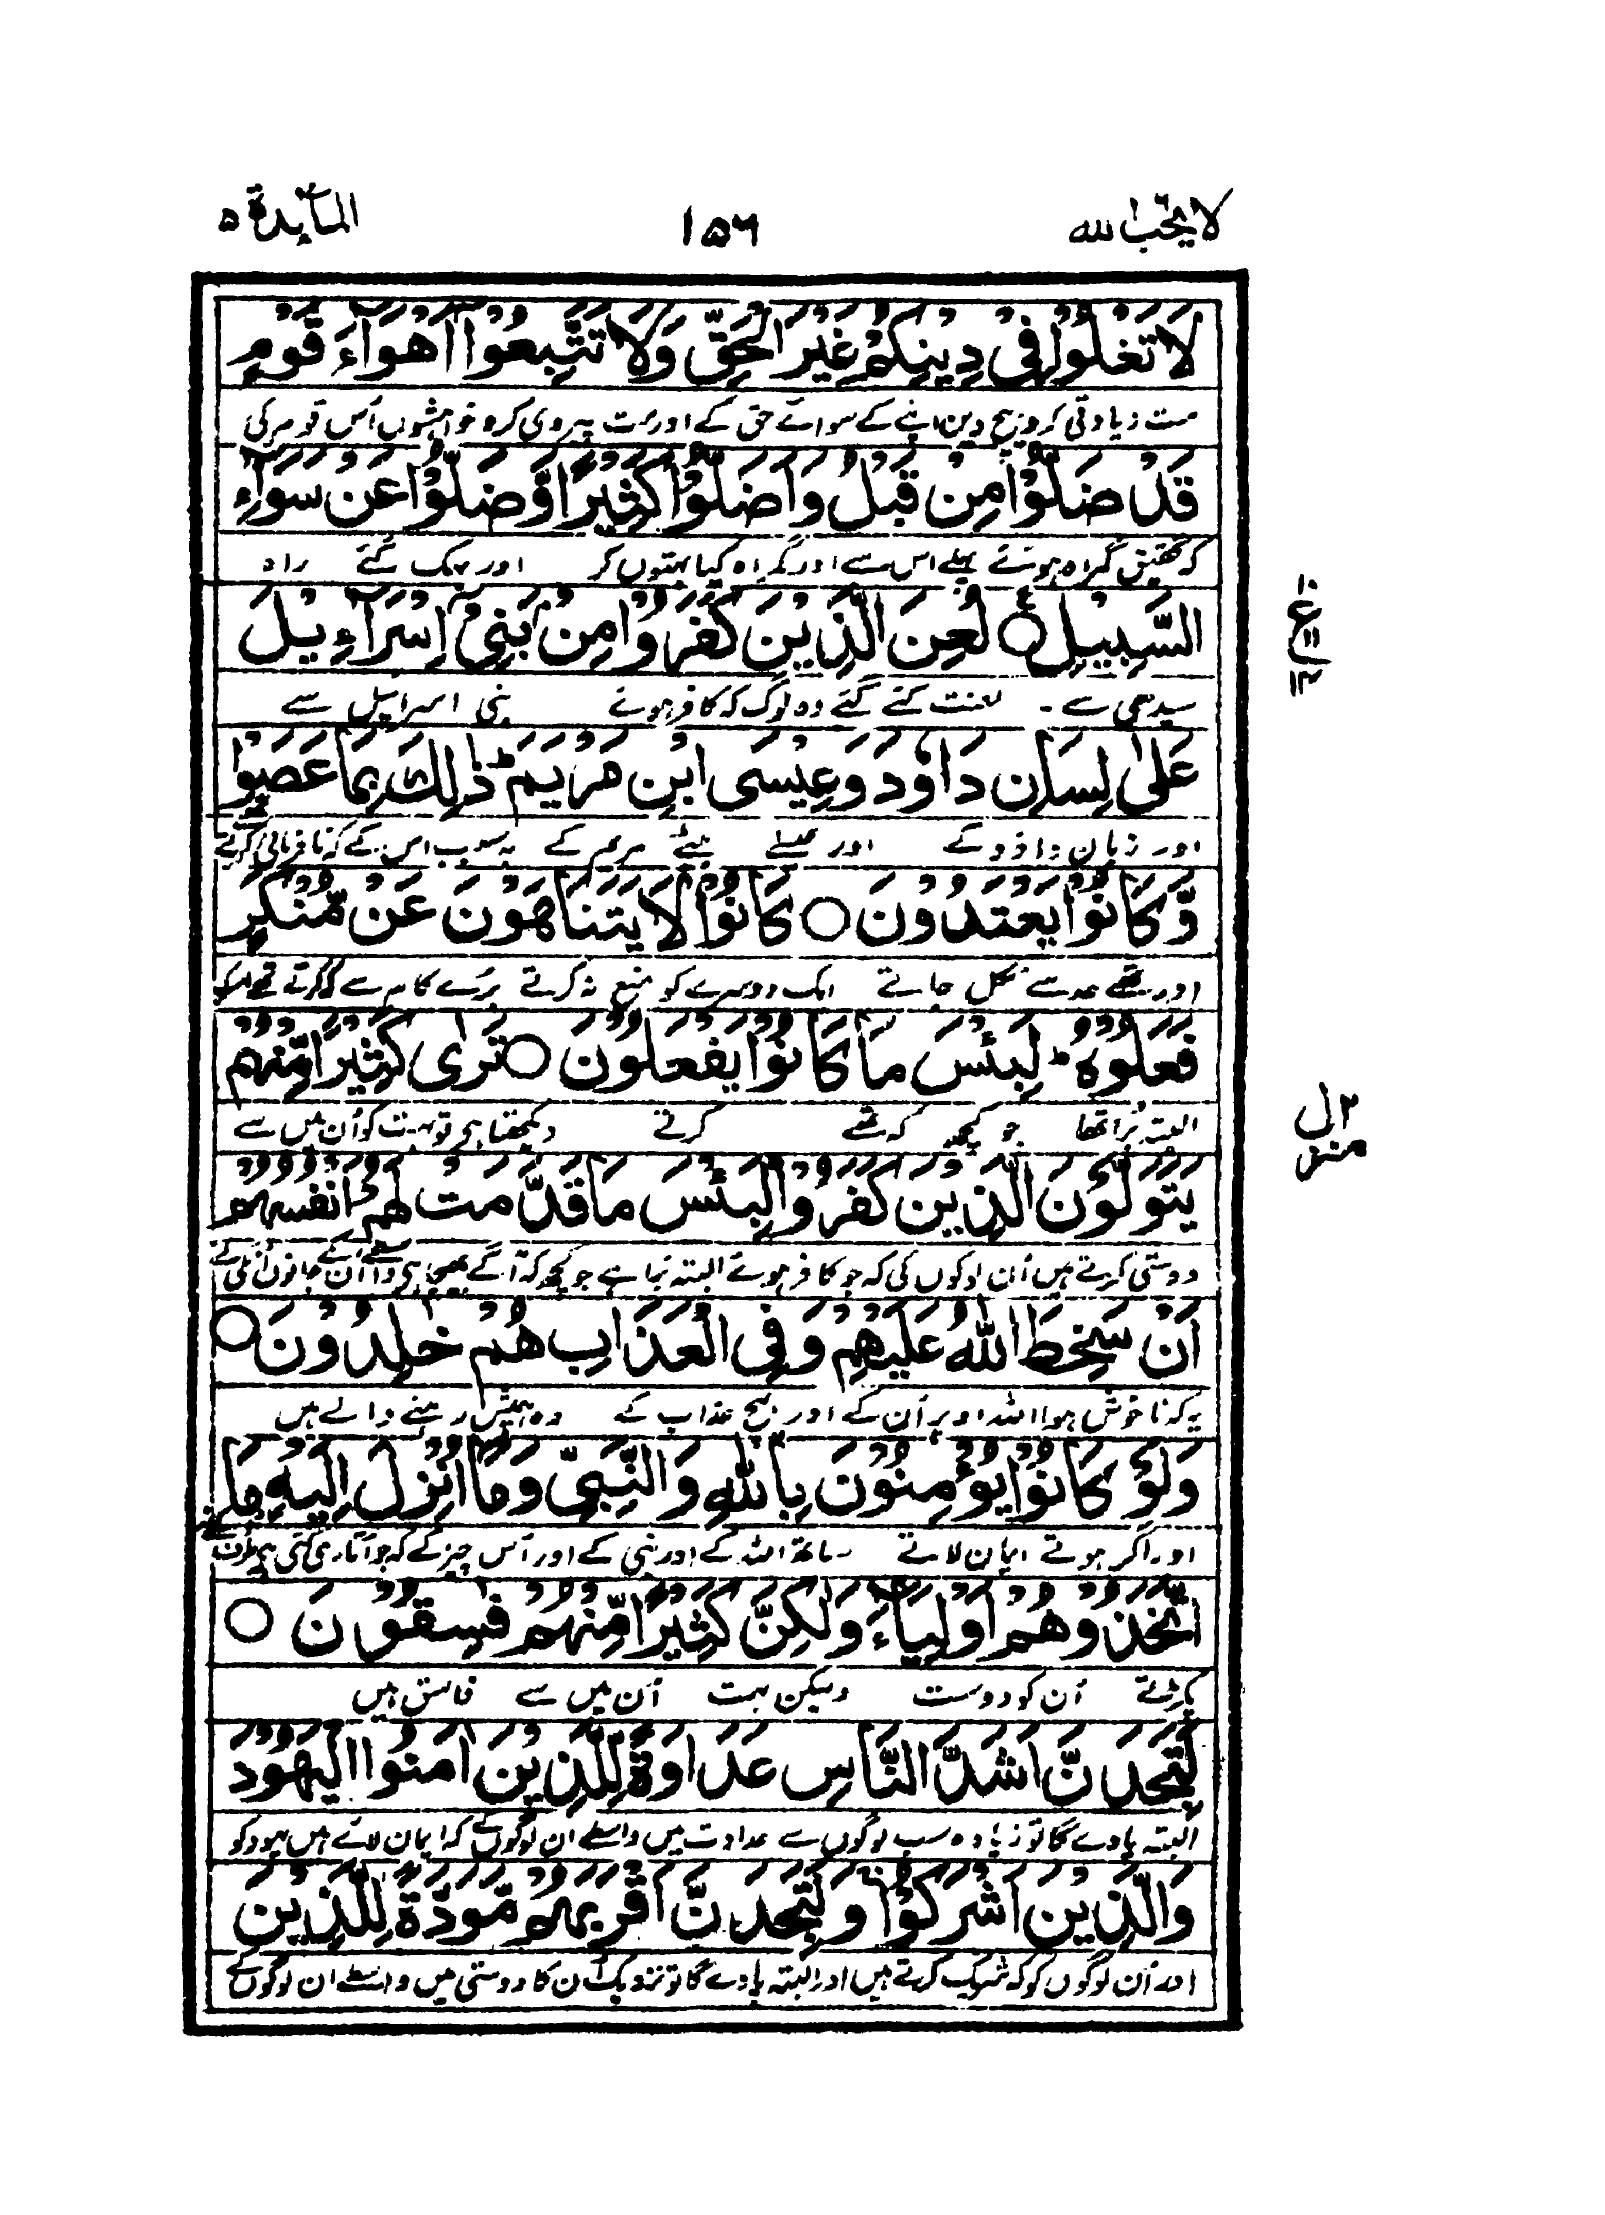 لا يحب الله
١٥٦
المآئدة ٥
لَا تَغْلُوْا فِیْ دِیْنِكُمْ غَیْرَ الْحَقِّ وَلَا تَتَّبِعُوْۤا اَهْوَآءَ قَوْمٍ
مت زیادتی کرو بیچ دین اپنے کے سوائے حق کے اور مت پیروی کرو خواہشوں اُس قوم کی
قَدْ ضَلُّوْا مِنْ قَبْلُ وَاَضَلُّوْا كَثِیْرًا وَّضَلُّوْا عَنْ سَوَآءِ
کہ تحقیق گمراہ ہوئے پہلے اس سے اور گمراہ کیا بہتوں کو اور بہک گئے راہ
السَّبِیْلِ ○ لُعِنَ الَّذِیْنَ كَفَرُوْا مِنْۢ بَنِیْۤ اِسْرَآءِیْلَ
سیدھی سے ۔ لعنت کئے گئے وہ لوگ کہ کافر ہوئے بنی اسرائیل سے
عَلٰی لِسَانِ دَاوٗدَ وَعِیْسَی ابْنِ مَرْیَمَ ؕ ذٰلِكَ بِمَا عَصَوْا
اوپر زبان داؤد کے اور عیسٰے بیٹے مریم کے یہ سبب اس کے کہ نافرمانی کرتے
وَّكَانُوْا یَعْتَدُوْنَ ○ كَانُوْا لَا یَتَنَاهَوْنَ عَنْ مُّنْكَرٍ
اور تھے حد سے نکل جاتے ایک دوسرے کو منع نہ کرتے بُرے کام سے کہ کرتے تھے
فَعَلُوْهُ ؕ لَبِئْسَ مَا كَانُوْا یَفْعَلُوْنَ ○ تَرٰی كَثِیْرًا مِّنْهُمْ
البتہ بُرا تھا جو کچھ کہ تھے کرتے دیکھتا ہے تو بہت کو اُن میں سے
یَتَوَلَّوْنَ الَّذِیْنَ كَفَرُوْا لَبِئْسَ مَا قَدَّمَتْ لَهُمْ اَنْفُسُهُمْ
دوستی کرتے ہیں اُن لوگوں کی کہ جو کافر ہوئے البتہ بُرا ہے جو کچھ کہ آگے بھیجا ہے واسطے اُن جانوں اپنی کے
اَنْ سَخِطَ اللّٰهُ عَلَیْهِمْ وَفِی الْعَذَابِ هُمْ خٰلِدُوْنَ ○
یہ کہ ناخوش ہوا اللہ اوپر اُن کے اور بیچ عذاب کے وہ ہمیش رہنے والے ہیں
وَلَوْ كَانُوْا یُؤْمِنُوْنَ بِاللّٰهِ وَالنَّبِیِّ وَمَاۤ اُنْزِلَ اِلَیْهِ مَا
اور اگر ہوتے ایمان لاتے ساتھ اللہ کے اور نبی کے اور اُس چیز کے کہ جو اُتاری گئی ہے طرف
اتَّخَذُوْهُمْ اَوْلِیَآءَ وَلٰكِنَّ كَثِیْرًا مِّنْهُمْ فٰسِقُوْنَ ○
پکڑتے اُن کو دوست ولیکن بہت اُن میں سے فاسق ہیں
لَتَجِدَنَّ اَشَدَّ النَّاسِ عَدَاوَةً لِّلَّذِیْنَ اٰمَنُوا الْیَهُوْدَ
البتہ پاوے گا تو زیادہ سب لوگوں سے عداوت میں واسطے ان لوگوں کے کہ ایمان لائے ہیں یہود کو
وَالَّذِیْنَ اَشْرَكُوْا ۚ وَلَتَجِدَنَّ اَقْرَبَهُمْ مَّوَدَّةً لِّلَّذِیْنَ
اور اُن لوگوں کو کہ شریک کرتے ہیں اور البتہ پاوے گا تو نزدیک اُن کا دوستی میں واسطے ان لوگوں کے
١٠
ع
١١
١٢
منزل ٢